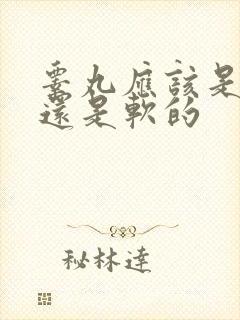 睾丸應該是
還是軟的
秘林達